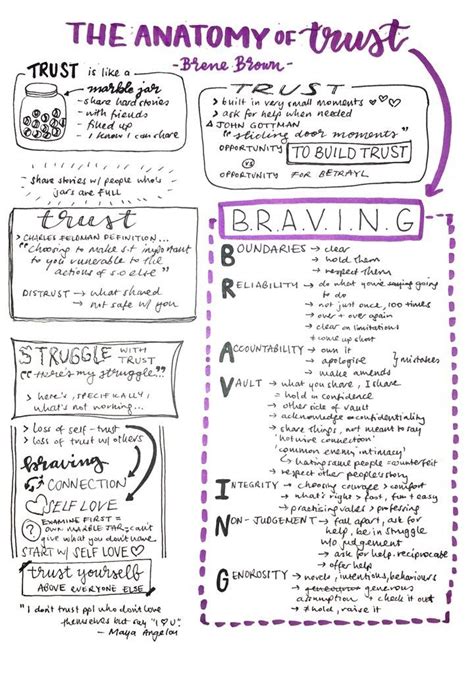 THE ANATOMY OF trust
- Brene Brown -
TRUST is like a
marble jar
- share hard stories
- with friends
filled up
- I know I can share
share stories w/ people who's
jars are FULL
TRUST
> built in very small moments
> ask for help when needed
JOHN GOTTMAN
"sliding door moments"
OPPORTUNITY TO BUILD TRUST
VS
OPPORTUNITY FOR BETRAYL
trust
> CHARLES FELDMAN DEFINITION...
"Choosing to make s.t important
to you vulnerable to the
actions of s.o else"
DISTRUST → what shared
→ not safe w/ you
STRUGGLE WITH
TRUST
"here's my struggle..."
> here's, SPECIFICALLY,
what's not working...
> loss of self-trust
> loss of trust w/ others
braving
CONNECTION
SELF LOVE
? EXAMINE FIRST =
OWN MARBLE JAR = can't
give what you don't have
START W/ SELF LOVE
trust yourself
ABOVE EVERYONE ELSE
"I don't trust ppl who don't love
themselves but say "I ♡ U".
- Maya Angelou
B.R.A.V.I.N.G
BOUNDARIES → clear
→ hold them
→ respect them
RELIABILITY → do what you're saying going
to do
→ not just once, 100 times
→ over + over again
→ clear on limitations
+ come up short
ACCOUNTABILITY → own it
→ apologise } mistakes
→ make amends
VAULT → what you share, I share
= hold in confidence
→ other side of vault
→ acknowledge confidentiality
→ share things, not meant to say
'hotwire connection'
'common enemy intimacy'
↳ hating same people = counterfeit
→ respect other people's story
INTEGRITY → choosing courage > comfort
→ what's right > fast, fun + easy
→ practicing vales > professing
NON-JUDGEMENT → fall apart, ask for
help, be in struggle
w/o judgement
→ ask for help. reciprocate
→ offer help
GENOROSITY → novels, intentions, behaviours
→ generous
assumption + check it out
→ ≠ hold, raise it